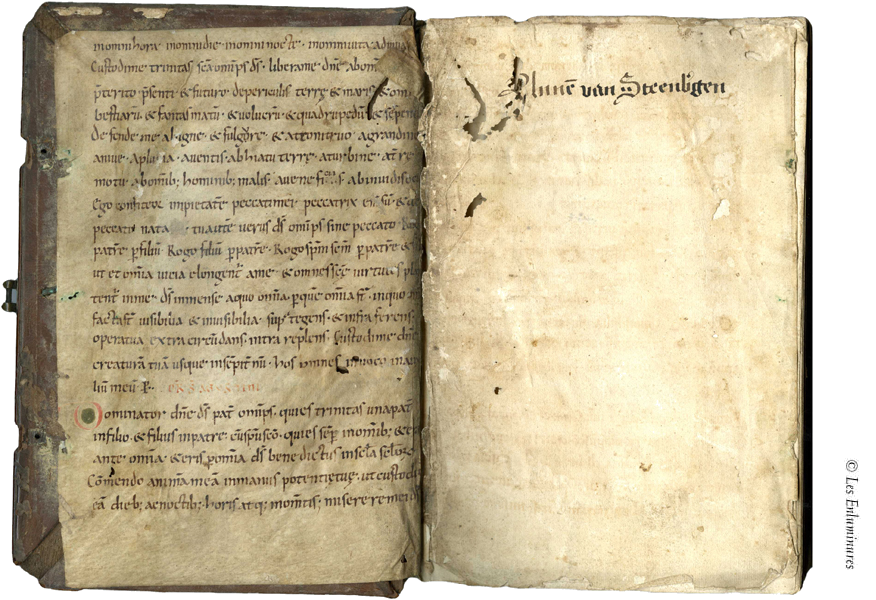 in omni hora in omni die in omni nocte in omni vita adiuva
Custodi me trinitas sca omps ds libera me dne ab om
pterito psenti & futuro de periculis terre & maris & om
bestiaru & fantasmatu & volucru & quadrupedu & serpen
defende me ab igne & fulgore & a tonitruo a grandine
a nive a pluvia a ventis ab hiatu terre a turbine a t re
motu ab omib; hominib; malis a veneficis ab invidis
Ego confiteor impietate peccati mei peccatrix eni su &
peccato nata tu autem verus ds omps sine peccato Ro
patre p filiu Rogo filiu p patre Rogo spm scm p patre &
ut et omia vicia elongent a me & omnes sce virtutes pl
tent in me ds inmense a quo omia p que omia in quo
facta st visibilia & invisibilia sup tegens & infra ferens
operatua extra circudans intra replens Custodi me dne
creatura tua usque in sepitnu hos omnes invoco in au
liu meu p
Dominator dne ds pat omips qui es trinitas una pat
in filio & filius in patre cu spu sco qui es semp in omib; & er
ante omia & eris p omia ds benedictus in scla sclor
Comendo anima mea in manus potentie tue ut custodi
ea dieb; ac noctib; horis atq; momtis; miserere mei d
van Steenbgen
© Les Enluminures